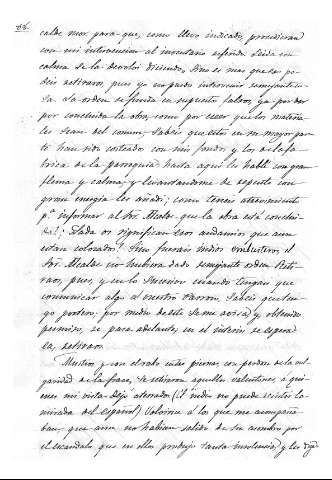 calde mor para que, como llevo indicado, procedieran
con mi intervencion al inventario referido. Leida con
calma se la devolví diciendo: Sino es mas que eso po-
deis retiraros, pues yo no puedo intervenir semejante co-
sa. La orden se funda en supuesto falso, ya por dar
por concluida la obra, como por creer que los materia-
les sean del comun; sabeis que estos en su mayor par-
te han sido costeados con mis fondos y los de la fa-
brica de la parroquia: hasta aquí les hablé con gran
flema y calma; y levantandome de repente con
gran energía les añadí; como teneis atrevimiento
pª informar al Sor. Alcalde que la obra está conclui-
da? ¿Nada os significan esos andamios que aun
estan colocados? Sino fuerais indios embusteros, el
Sor. Alcalde no hubiera dado semejante orden. Reti-
raos, pues, y en lo sucesivo cuando tengan que
comunicar algo al vuestro Parroco, sabeis que ten-
go portero; por medio de este se me avisa y obtenido
permiso, se pasa adelante, en el interin se espera
ea, retiraos.
Mustios y con el rabo entre piernas, con perdon de la vul-
garidad de la frase, se retiraron aquellos valentones, á quie-
nes mi vista dejó aterrados (el indio no puede resistir la
mirada del español) Volvime á los que me acompaña-
ban, que aun no habian salido de su asombro por
el escandalo que en ellos produjo tanta insolencia, y les dije